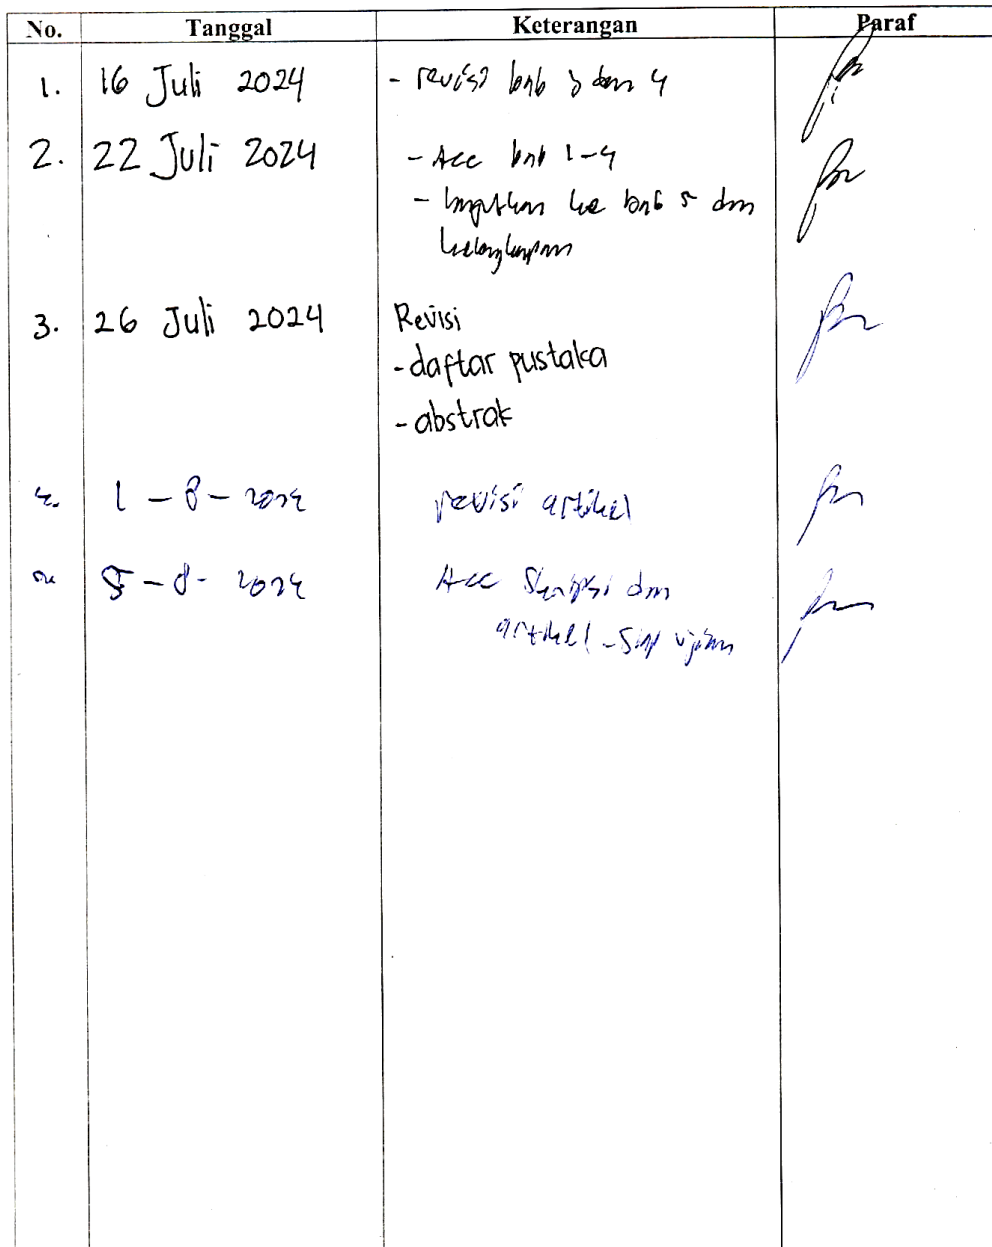 No. Tanggal Keterangan Paraf
1. 16 Juli 2024 - revisi bab 3 dan 4
2. 22 Juli 2024 - Acc bab 1-4
- lanjutkan ke bab 5 dan
kelengkapan
3. 26 Juli 2024 Revisi
- daftar pustaka
- abstrak
4. 1 - 8 - 2024 revisi artikel
5. 5 - 8 - 2024 Acc Skripsi dan
artikel - siap ujian